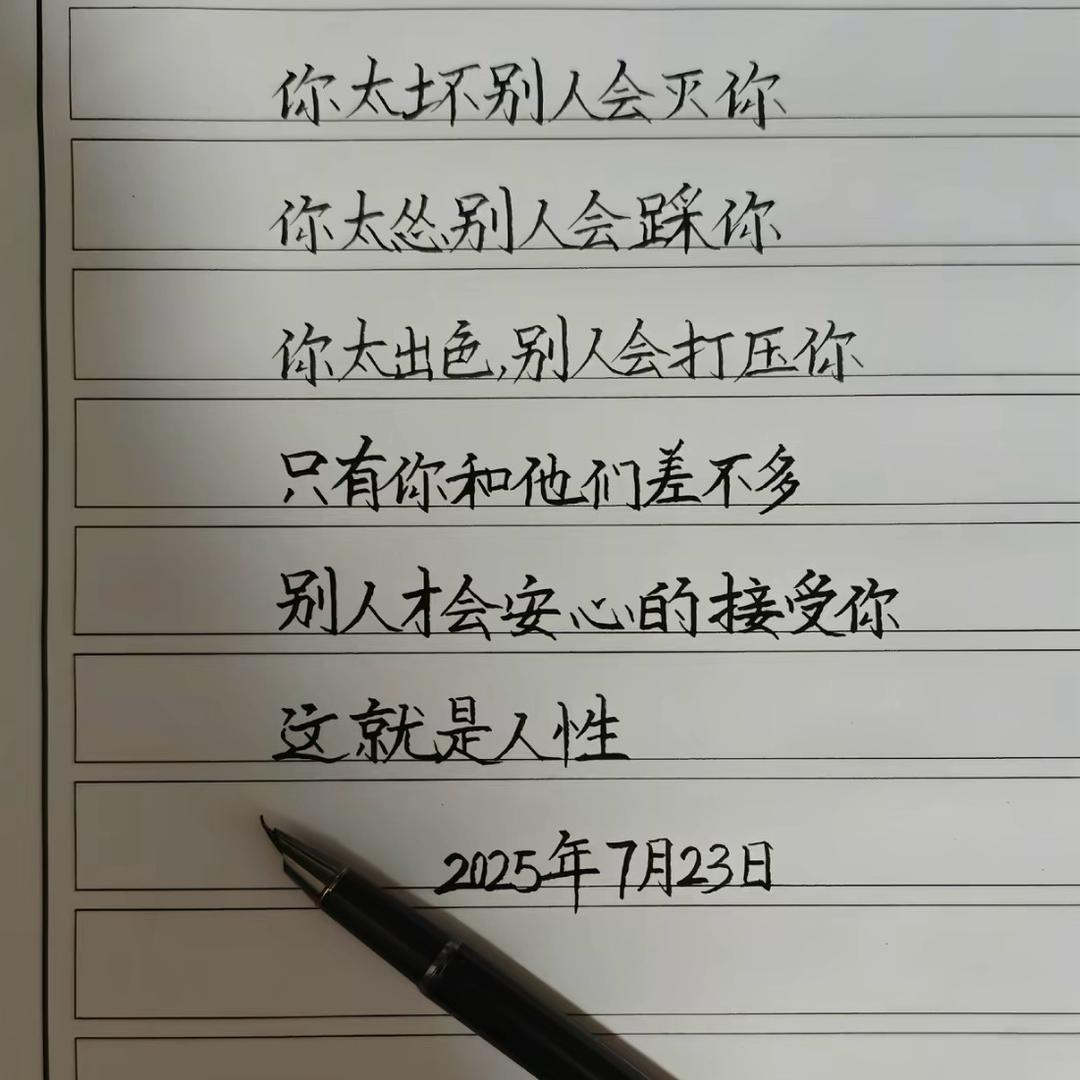 你太坏别人会灭你
你太怂别人会踩你
你太出色,别人会打压你
只有你和他们差不多
别人才会安心的接受你
这就是人性
2025年7月23日